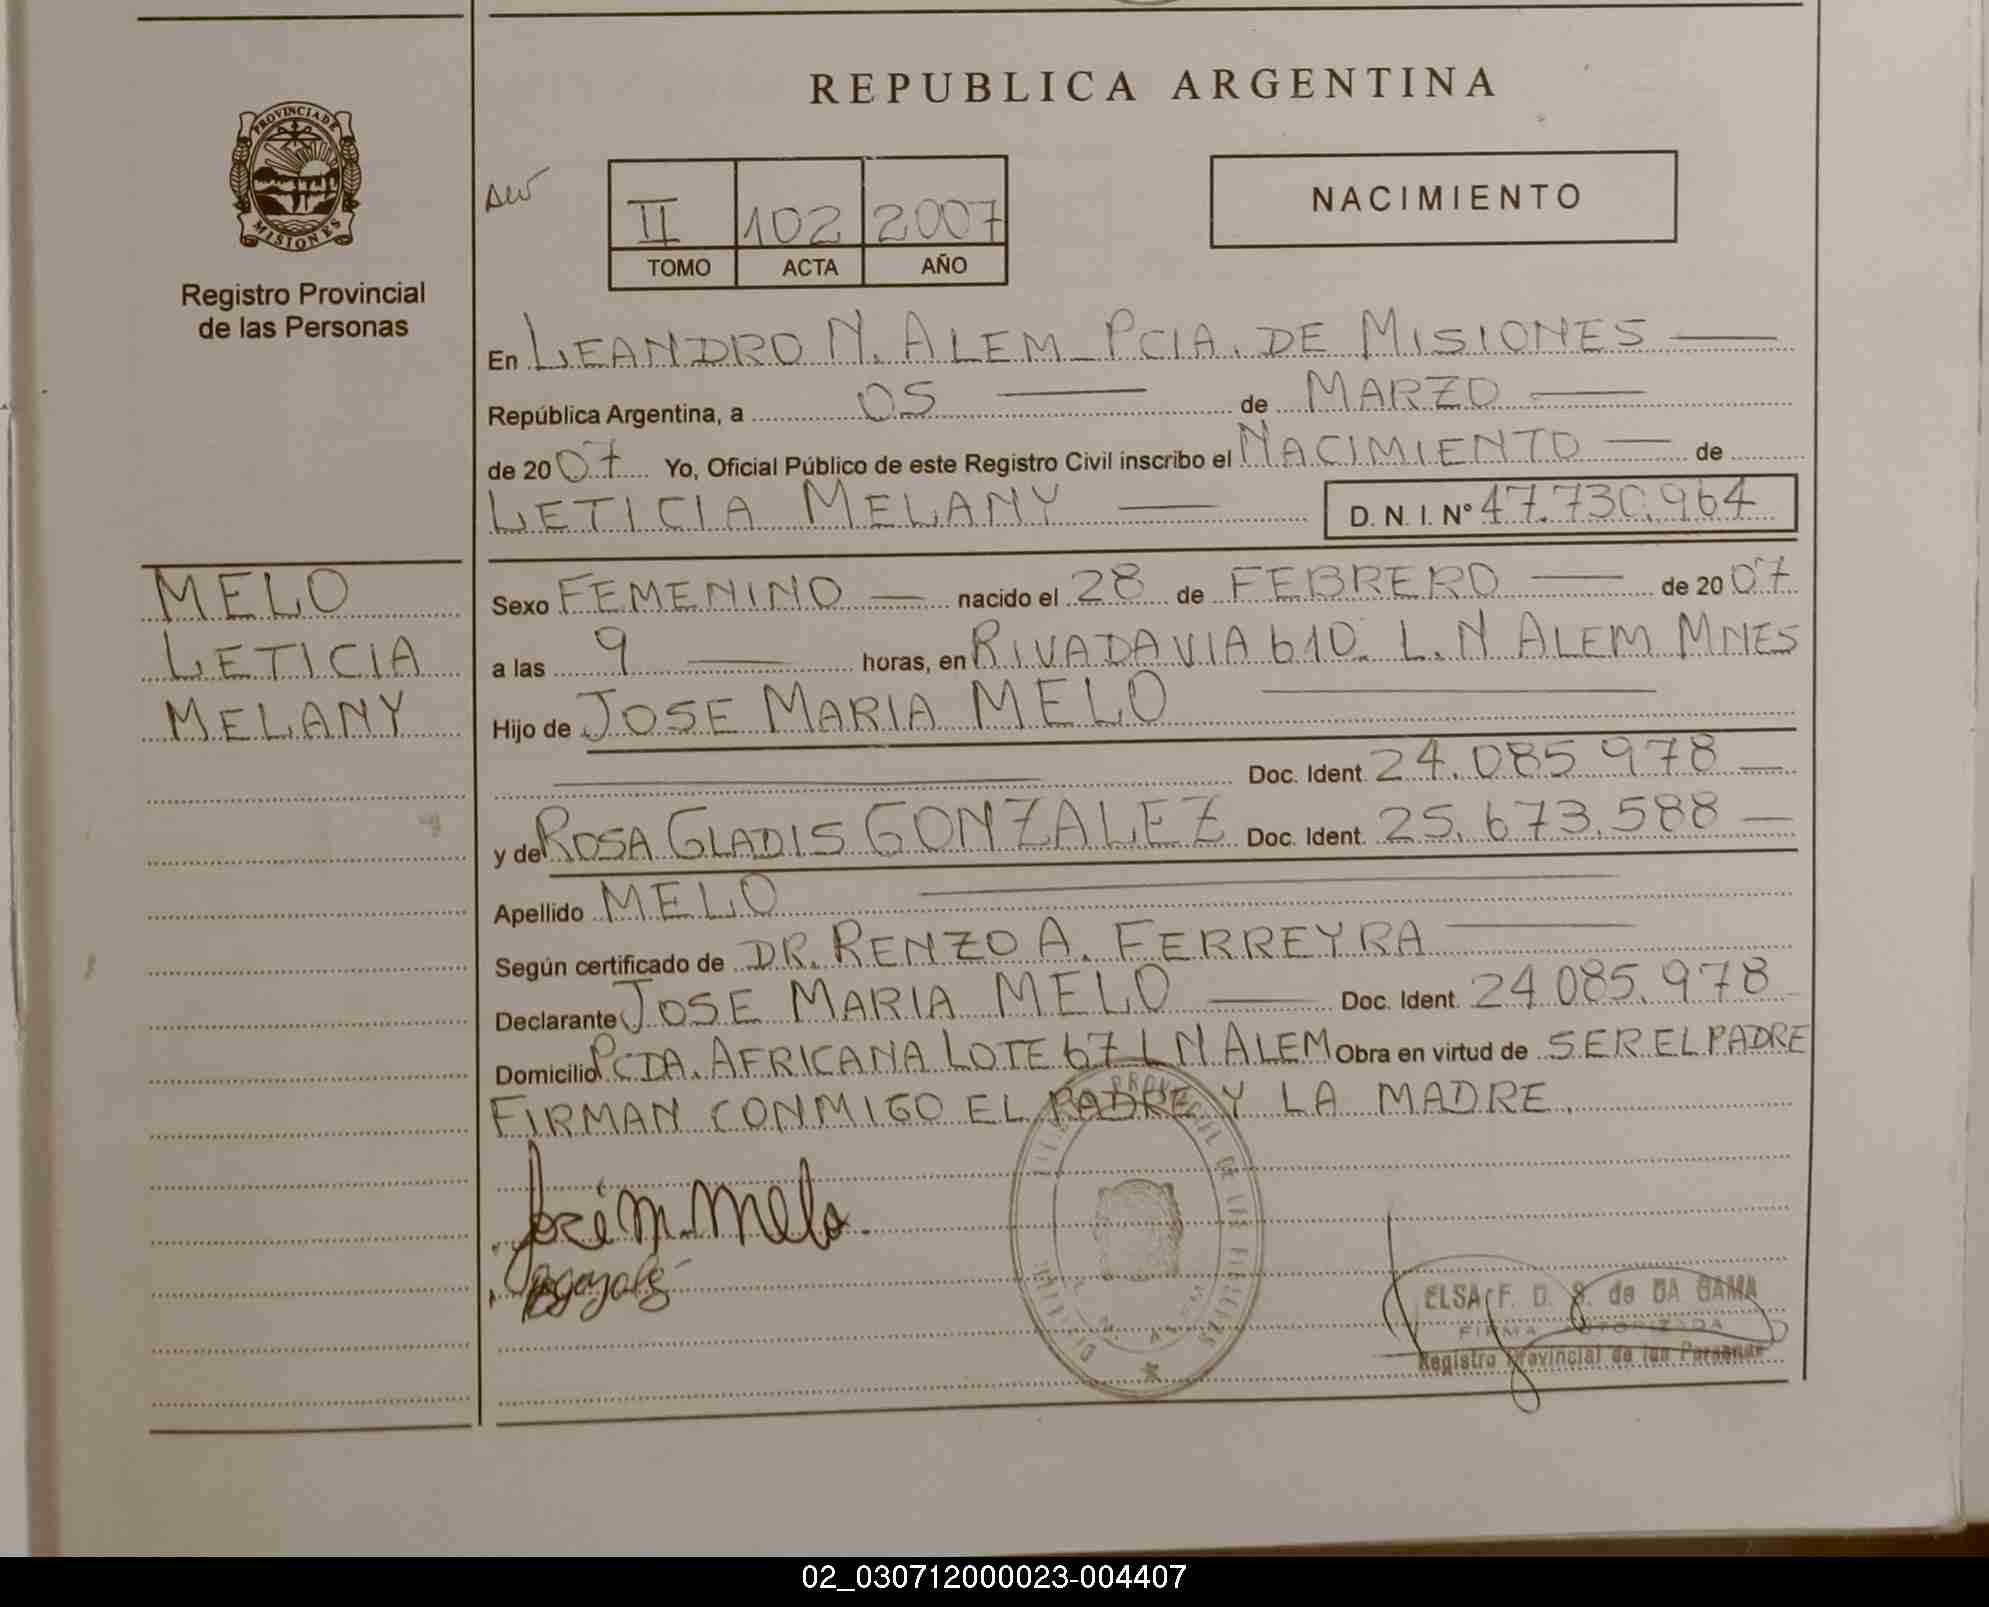 REPUBLICA ARGENTINA
PROVINCIA DE
MISIONES
Registro Provincial
de las Personas
II 102 2007
TOMO ACTA AÑO
NACIMIENTO
En LEANDRO N. ALEM - PCIA. DE MISIONES
República Argentina, a 05 de MARZO
de 2007 Yo, Oficial Público de este Registro Civil inscribo el NACIMIENTO de
LETICIA MELANY D. N. I. N° 47.730.964
MELO
LETICIA
MELANY
Sexo FEMENINO nacido el 28 de FEBRERO de 2007
a las 9 horas, en RIVADAVIA 610. L.N ALEM MNES
Hijo de JOSE MARIA MELO
Doc. Ident. 24.085.978
y de ROSA GLADIS GONZALEZ Doc. Ident. 25.673.588
Apellido MELO
Según certificado de DR. RENZO A. FERREYRA
Declarante JOSE MARIA MELO Doc. Ident. 24.085.978
Domicilio PCDA. AFRICANA LOTE 67 L N ALEM Obra en virtud de SER EL PADRE
FIRMAN CONMIGO EL PADRE Y LA MADRE.
José M. Melo.
ELSA F. D. S. de DA GAMA
FIRMA AUTORIZADA
Registro Provincial de las Personas
02_030712000023-004407